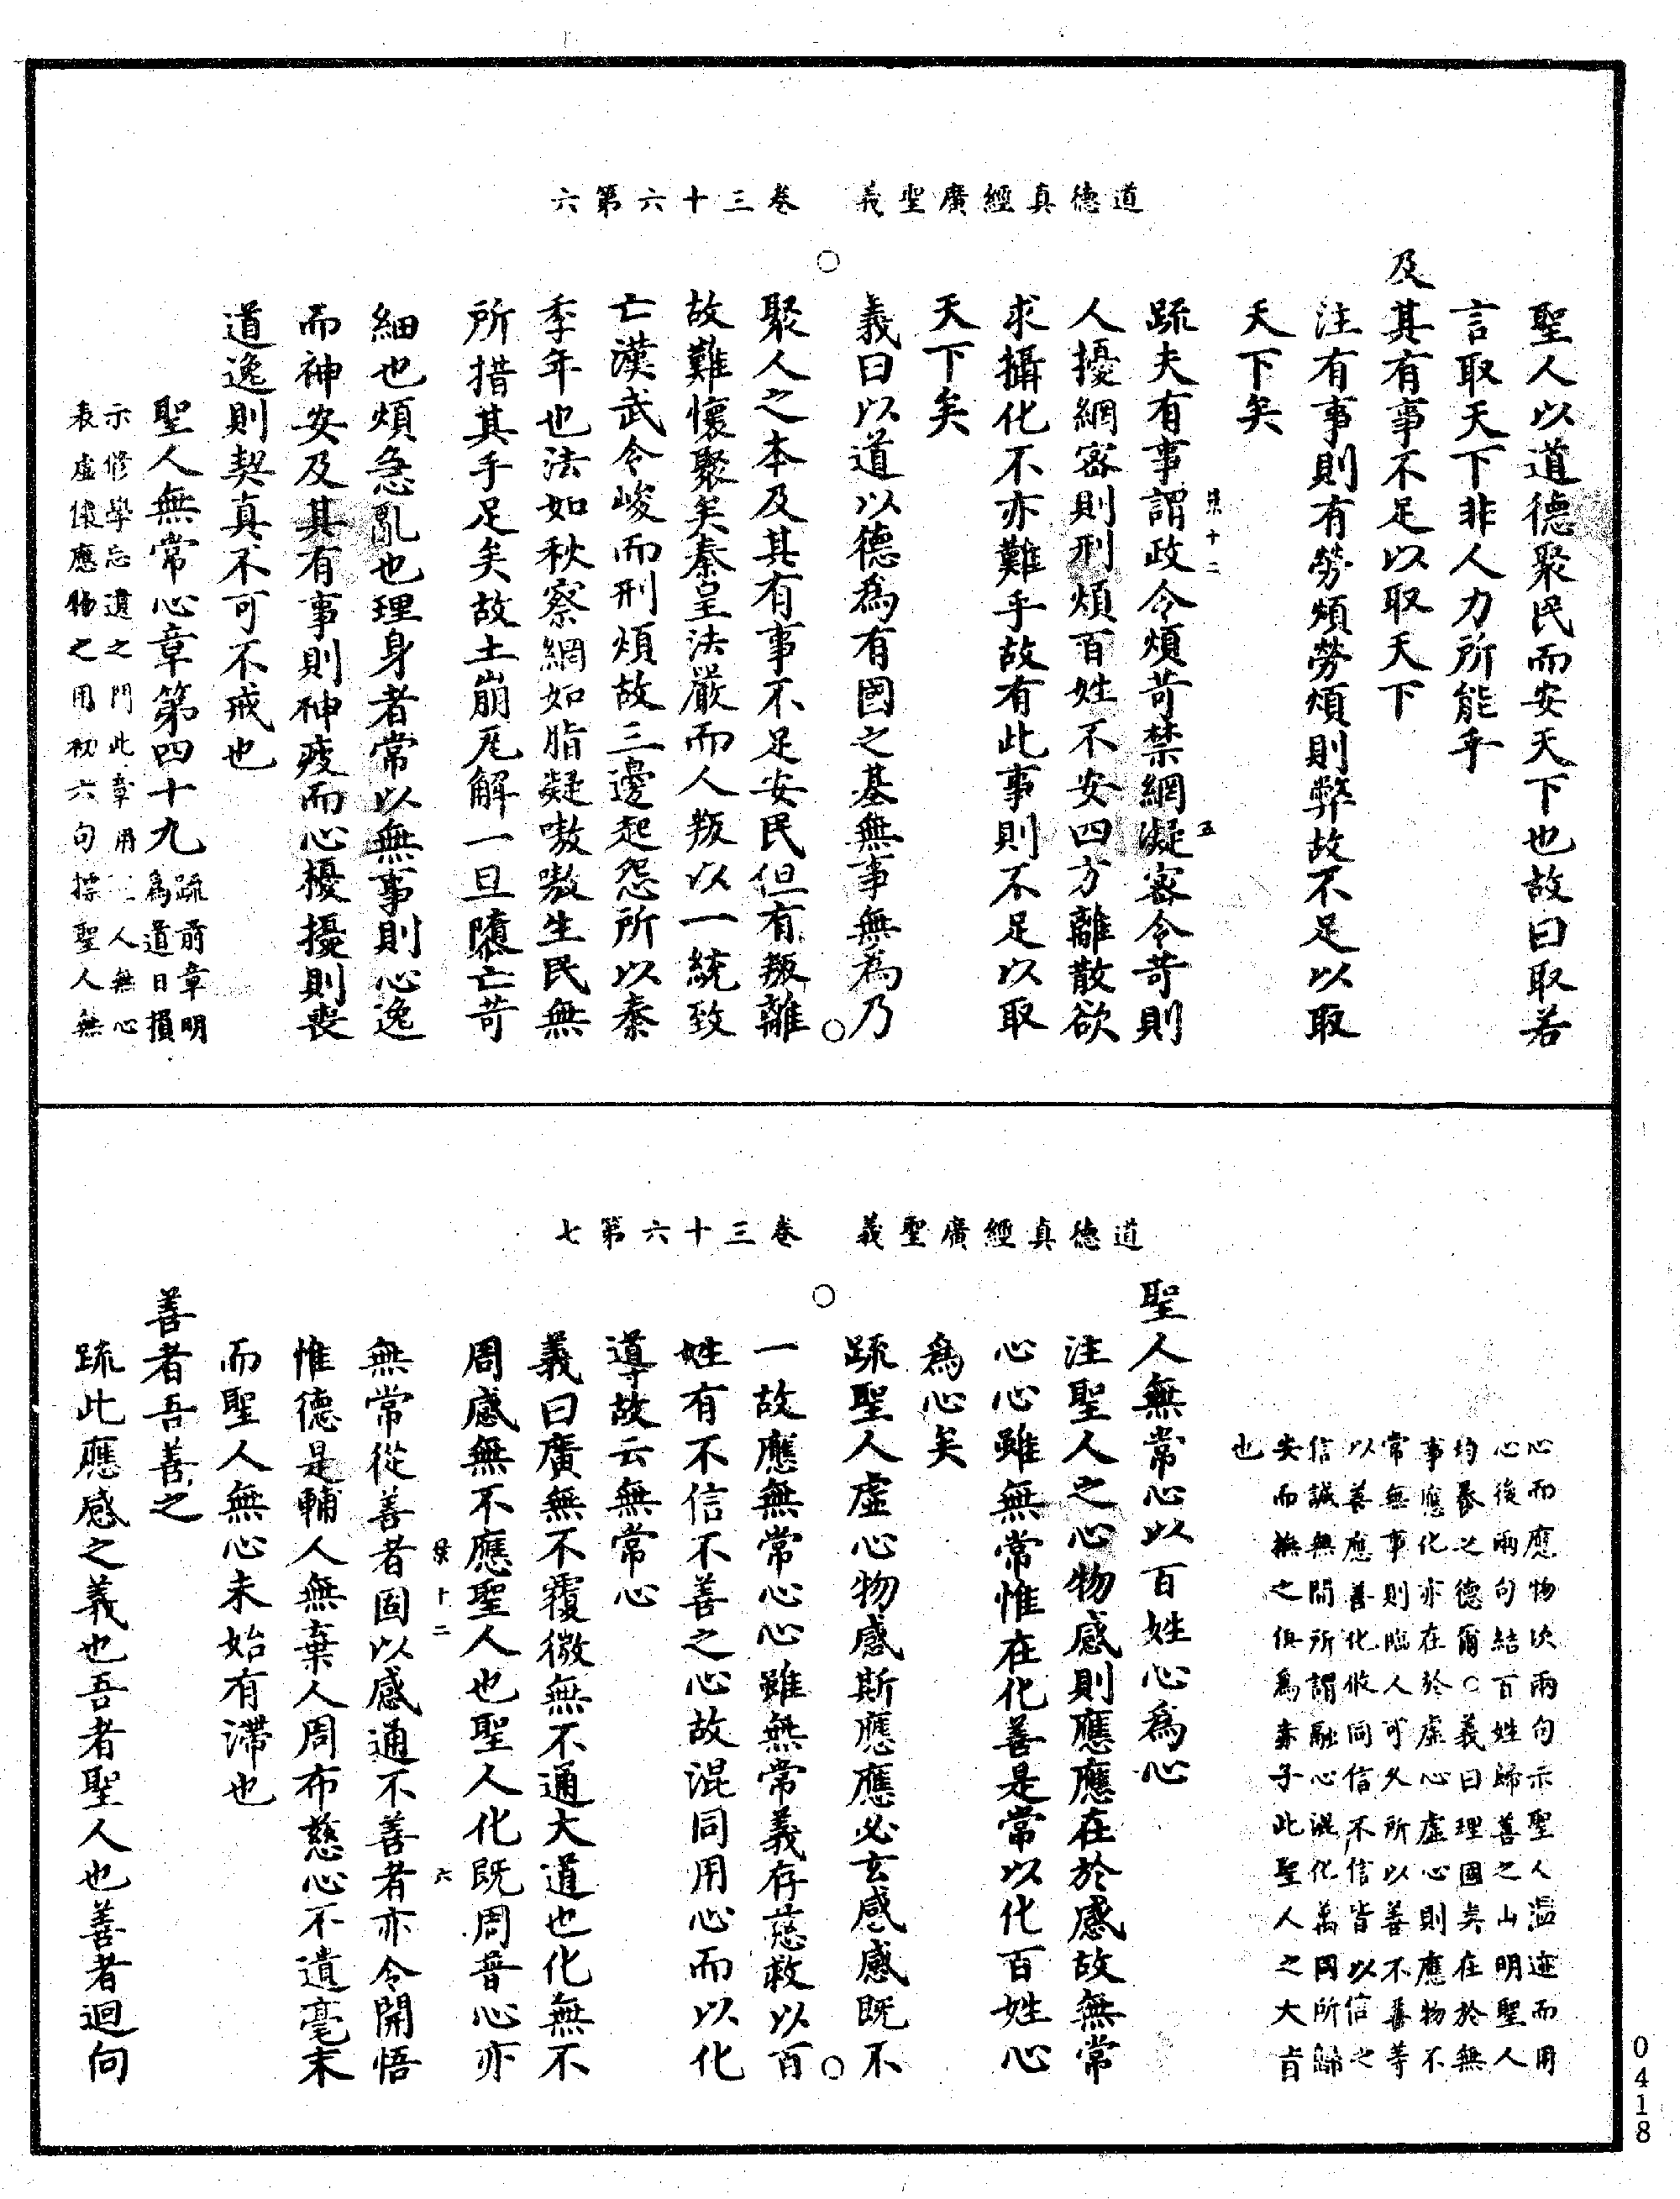 道德真經廣聖義　卷三十六第六
聖人以道德聚民而安天下也故曰取若
言取天下非人力所能乎
及其有事不足以取天下
注有事則有勞煩勞煩則弊故不足以取
天下矣
疏夫有事謂政令煩苛禁網凝密令苛則
人擾網密則刑煩百姓不安四方離散欲
求攝化不亦難乎故有此事則不足以取
天下矣
義曰以道以德為有國之基無事無為乃
聚人之本及其有事不足安民但有叛離
故難懷聚矣秦皇法嚴而人叛以一統致
亡漢武令峻而刑煩故三邊起怨所以秦
季年也法如秋察網如脂凝嗷嗷生民無
所措其手足矣故土崩瓦解一旦隳亡苛
細也煩急亂也理身者常以無事則心逸
而神安及其有事則神疲而心擾擾則喪
道逸則契真不可不戒也
聖人無常心章第四十九
疏前章明
為道日損
示修學忘遣之門此章用人無心
表虛懷應物之用初六句摽聖人無
道德真經廣聖義　卷三十六第七
心而應物次兩句示聖人混迹而用
心後兩句結百姓歸善之由明聖人
均養之德爾○義曰理國失在於無
事應化亦在於虛心虛心則應物不
常無事則臨人可久所以善不善等
以善應善化攸同信不信皆以信之
信誠無間所謂融心混化萬國所歸
安而撫之俱為赤子此聖人之大旨
也
聖人無常心以百姓心為心
注聖人之心物感則應應在於感故無常
心心雖無常惟在化善是常以化百姓心
為心矣
疏聖人虛心物感斯應應必玄感感既不
一故應無常心心雖無常義存慈救以百
姓有不信不善之心故混同用心而以化
導故云無常心
義曰廣無不覆微無不通大道也化無不
周感無不應聖人也聖人化既周普心亦
無常從善者固以感通不善者亦令開悟
惟德是輔人無棄人周布慈心不遺毫末
而聖人無心未始有滯也
善者吾善之
疏此應感之義也吾者聖人也善者迴向
0418